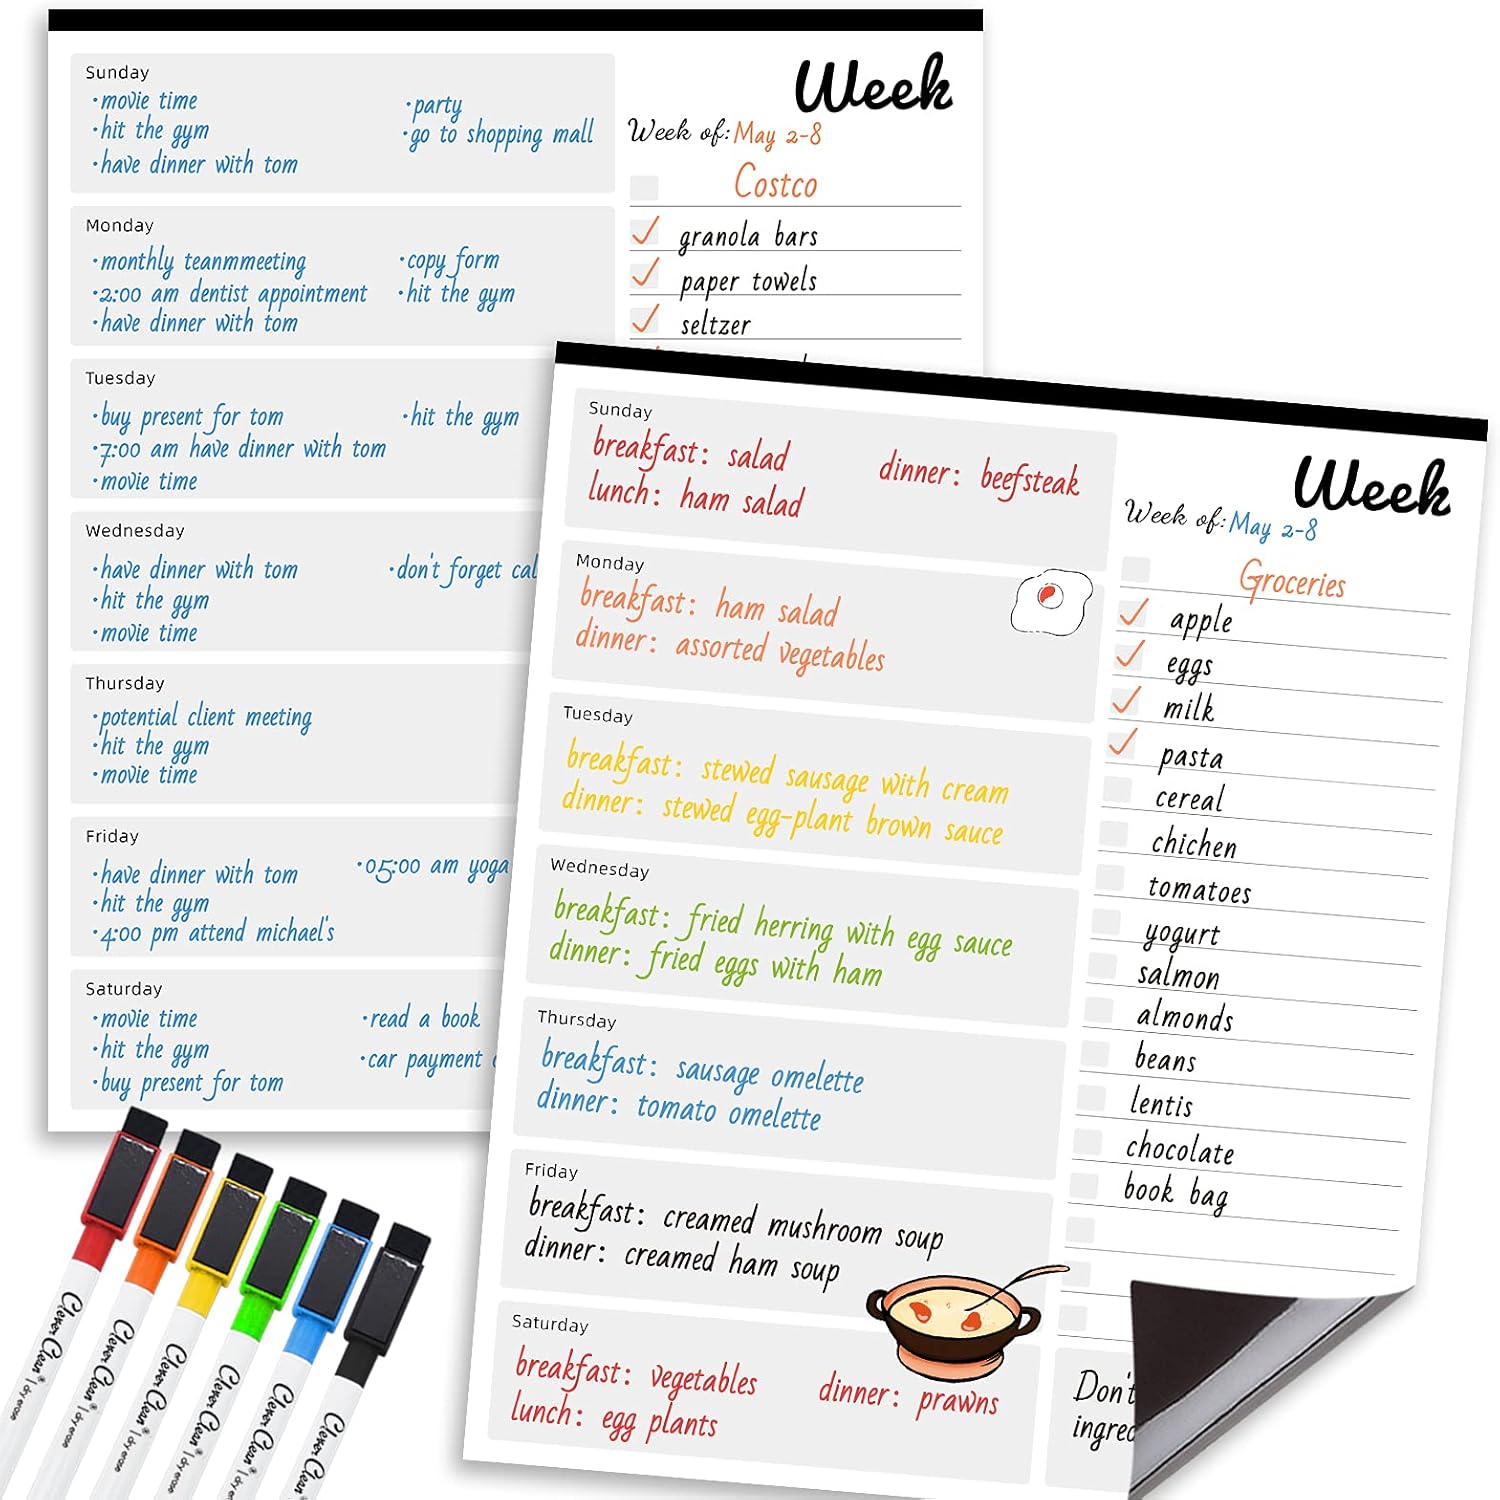 Week
Week of: May 2-8
Sunday
·movie time
·hit the gym
·have dinner with tom
·party
·go to shopping mall
Monday
·monthly teanmmeeting
·2:00 am dentist appointment
·have dinner with tom
·copy form
·hit the gym
Tuesday
·buy present for tom
·7:00 am have dinner with tom
·movie time
·hit the gym
Wednesday
·have dinner with tom
·hit the gym
·movie time
·don't forget
Thursday
·potential client meeting
·hit the gym
·movie time
Friday
·have dinner with tom
·hit the gym
·4:00 pm attend michael's
·05:00 am yoga
Saturday
·movie time
·hit the gym
·buy present for tom
·read a book
·car payment
Costco
granola bars
paper towels
seltzer
Week
Week of: May 2-8
Sunday
breakfast: salad
lunch: ham salad
dinner: beefsteak
Monday
breakfast: ham salad
dinner: assorted vegetables
Tuesday
breakfast: stewed sausage with cream
dinner: stewed egg-plant brown sauce
Wednesday
breakfast: fried herring with egg sauce
dinner: fried eggs with ham
Thursday
breakfast: sausage omelette
dinner: tomato omelette
Friday
breakfast: creamed mushroom soup
dinner: creamed ham soup
Saturday
breakfast: vegetables
lunch: egg plants
dinner: prawns
Groceries
apple
eggs
milk
pasta
cereal
chichen
tomatoes
yogurt
salmon
almonds
beans
lentis
chocolate
book bag
Don't
Clever Clean® | dry erase
Clever Clean® | dry erase
Clever Clean® | dry erase
Clever Clean® | dry erase
Clever Clean®
Clever Clean